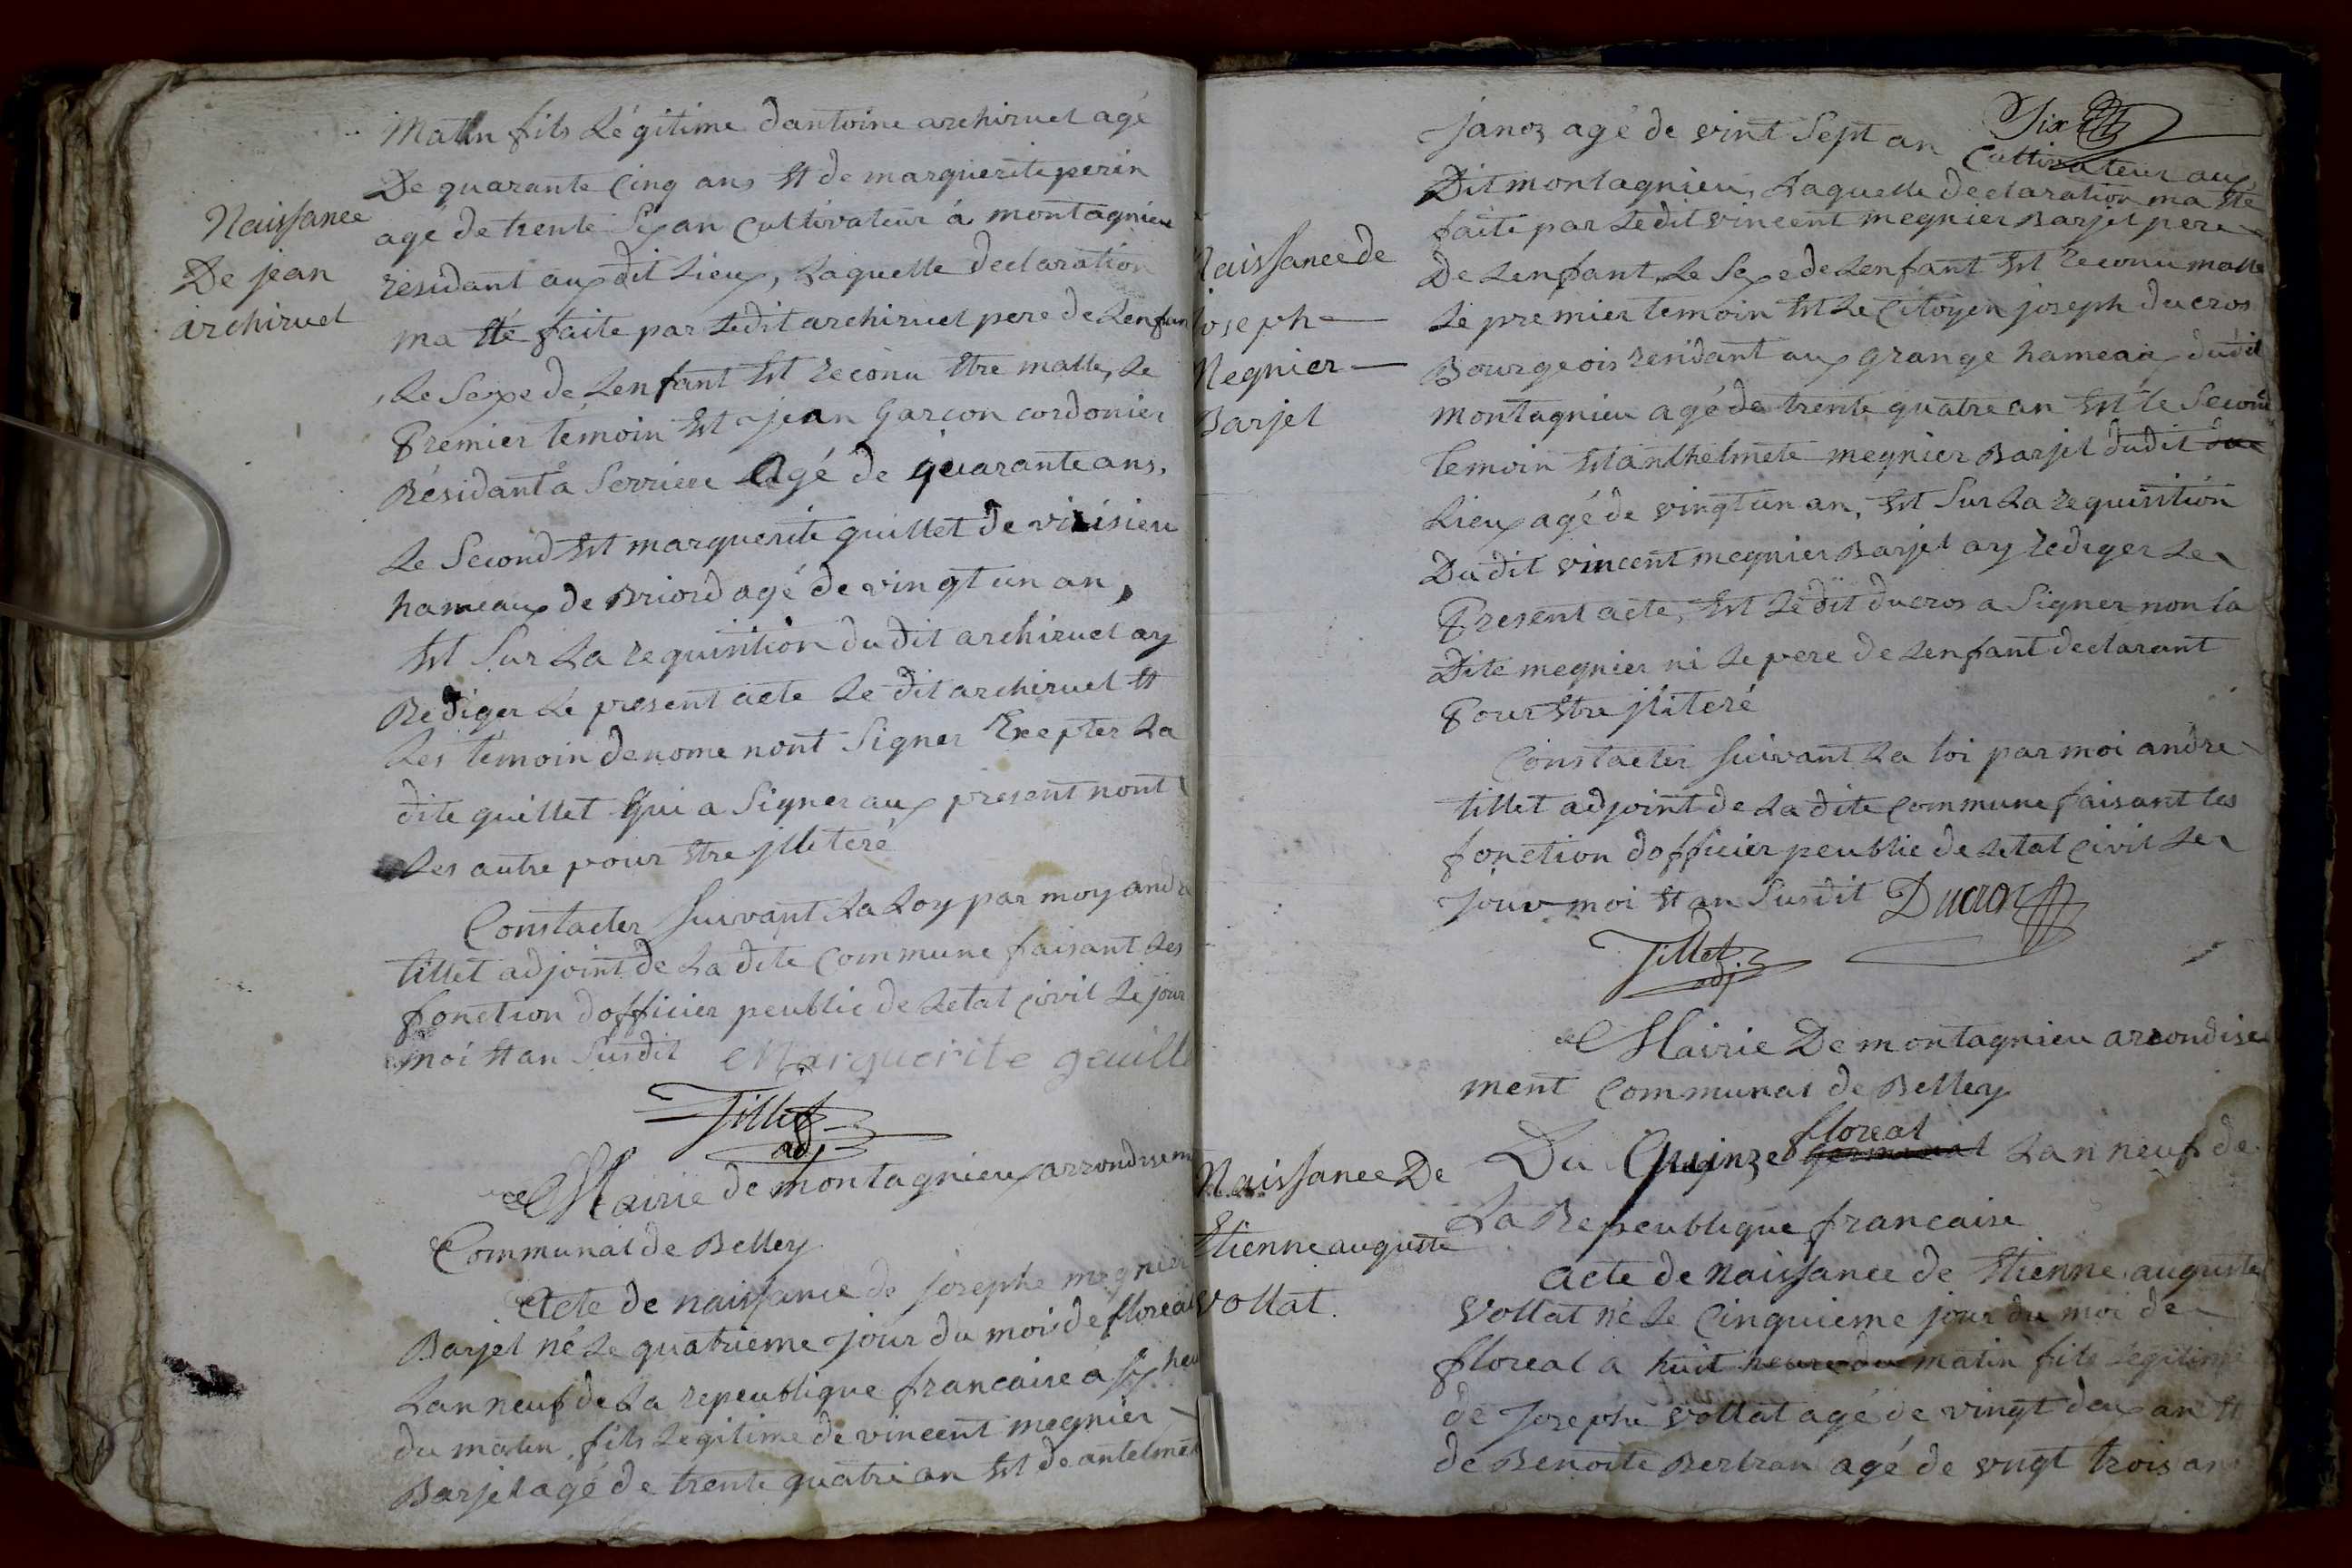 Naissance
De jean
archiruel
Matin fils Légitime dantoine archiruel agé
De quarante Cinq ans Et de marguerite perin
agé de trente Six an Cultivateur á montagnieu
résidant aux dit Lieux, Laquelle declaration
ma Eté faite par Ledit archiruel pere de Lenfan
, Le Sexe de Lenfant Est reconu Etre malle, Le
Premier témoin Est jean Garçon cordonier
Résidant á Serriere Agé de quarante ans,
Le Second Est marguerite guillet de vizisieu
hameaux de Briord agé de vingt un an,
Est Sur La requisition dudit archiruel ay
Rédiger Lé present acte Le dit archiruel Et
Les témoin denome nont Signer Excepter La
dite guillet Qui a Signer aux present nont
Les autre pour Etre jlliteré
Constacter Suivant La Loy par moy andre
tillet adjoint de La dite Commune faisant Les
fonction dofficier peublic de Letat Civil Le jour
moi Et an Susdit Marguerite geuille
Tillet
adj
Mairie de montagnieux arrondisem
Communal de Belley
Acte de naissance de Josephe megnier
Barjel né Le quatrieme jour du mois de floréal
Lan neuf de La repeublique francaise á six heu
du matin, fils Legitime de vincent megnier
Barjel agé de trente quatre an Est de antelmet
Naissance de
joseph
Megnier
Barjel
janoz agé de vint Sept an Cultivateur aux
Six
Dit montagnieu, Laquelle declaration ma Eté
faite par Ledit vincent megnier Barjel pere
De Lenfant, Le Sexe de Lenfant Est reconu malle
Le premier temoin Est Le Citoyen joseph ducros
Bourgeois residant aux grange hameaux dudit
montagnieu agé de trente quatre an Est le Second
temoin Est anthelmete megnier Barjel dudit
Lieux agé de vingt un an, Est Sur La requisition
Du dit vincent megnier Barjel ay rediger Le
Present acte, Est Le dit ducros a Signer non la
Dite megnier ni Le pere de Lenfant declarant
Pour Etre jliteré
Constacter Suivant La loi par moi andre
tillet adjoint de La dite Commune faisant les
fonction dofficier peublic de Letat Civil Le
jour moi Et an Susdit Ducros
Tillet
adj
Mairie De montagnieu arondise
ment Communal de Belley
Naissance De
Etienne auguste
vollat.
floreal
Du Quinze germinal Lan neuf de
La Repeublique francaise
acte de Naissance de Etienne auguste
Vollat né Le Cinquieme jour du moi de
floreal a huit heure du matin fils Legitime
de Josephe Vollat agé de vingt deux an Et
de Benoite Bertran agé de vingt trois an